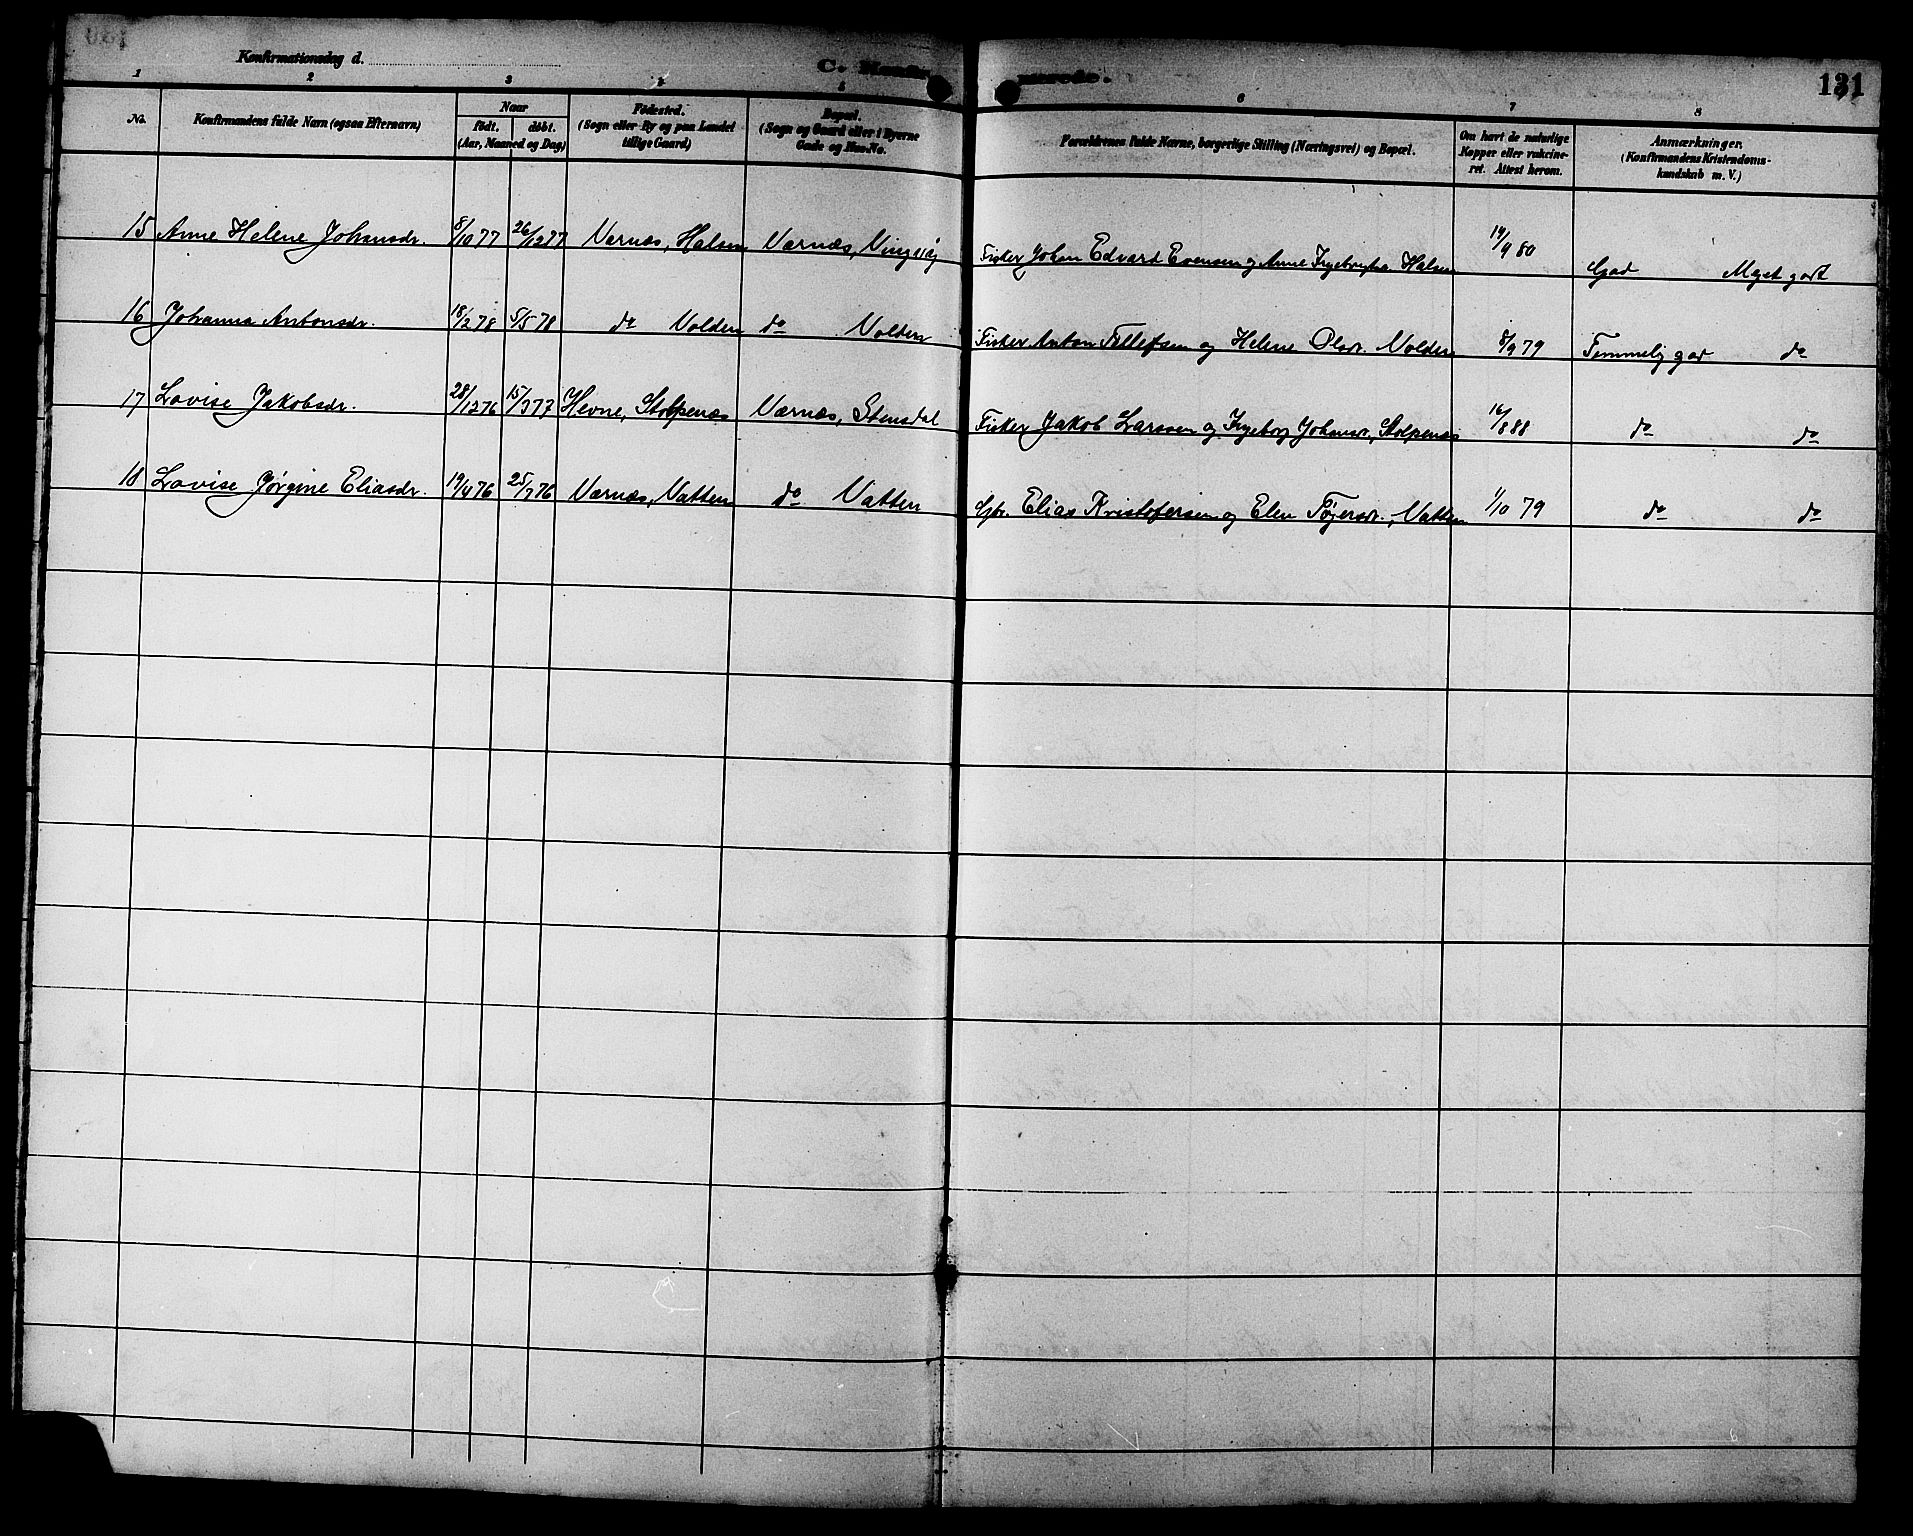 Konfirmationsdag d.
C. Konfir
131
1 2 3 4 5 6 7 8
No.
Konfirmandens fulde Navn (ogsaa Efternavn)
Naar
født. døbt.
(Aar, Maaned og Dag)
Fødested.
(Sogn eller By og paa Landet
tillige Gaard)
Bopæl.
(Sogn og Gaard eller i Byerne
Gade og Hus-No.
Forældrenes fulde Navne, borgerlige Stilling (Næringsvei) og Bopæl.
Om havt de naturlige
Kopper eller vakcine-
ret. Attest herom.
Anmærkninger.
(Konfirmandens Kristendoms-
kundskab m. V.)
15 Anne Helene Johansdr. 8/10 77 26/12 77 Værnæs, Halsen Værnæs, Vingvåg Fisker Johan Edvard Evensen og Anne Halsen 14/9 80 God Meget godt
16 Johanna Antonsdr. 18/2 78 5/5 78 do Volden do Volden Fisker Anton Tellefsen og Helene Olsdr. Volden 8/9 79 Temmelig god do
17 Lovise Jakobsdr. 28/12 76 15/3 77 Hevne, Stolpenæs Værnæs, Stensdal Fisker Jakob Larssen og Ingeborg Johansdr., Stolpenæs 16/8 88 do do
18 Lovise Jørgine Eliasdr. 19/4 76 25/7 76 Værnæs, Vatten do Vatten Gbr. Elias Kristofersen og Elen Tøgersdr., Vatten 1/10 79 do do